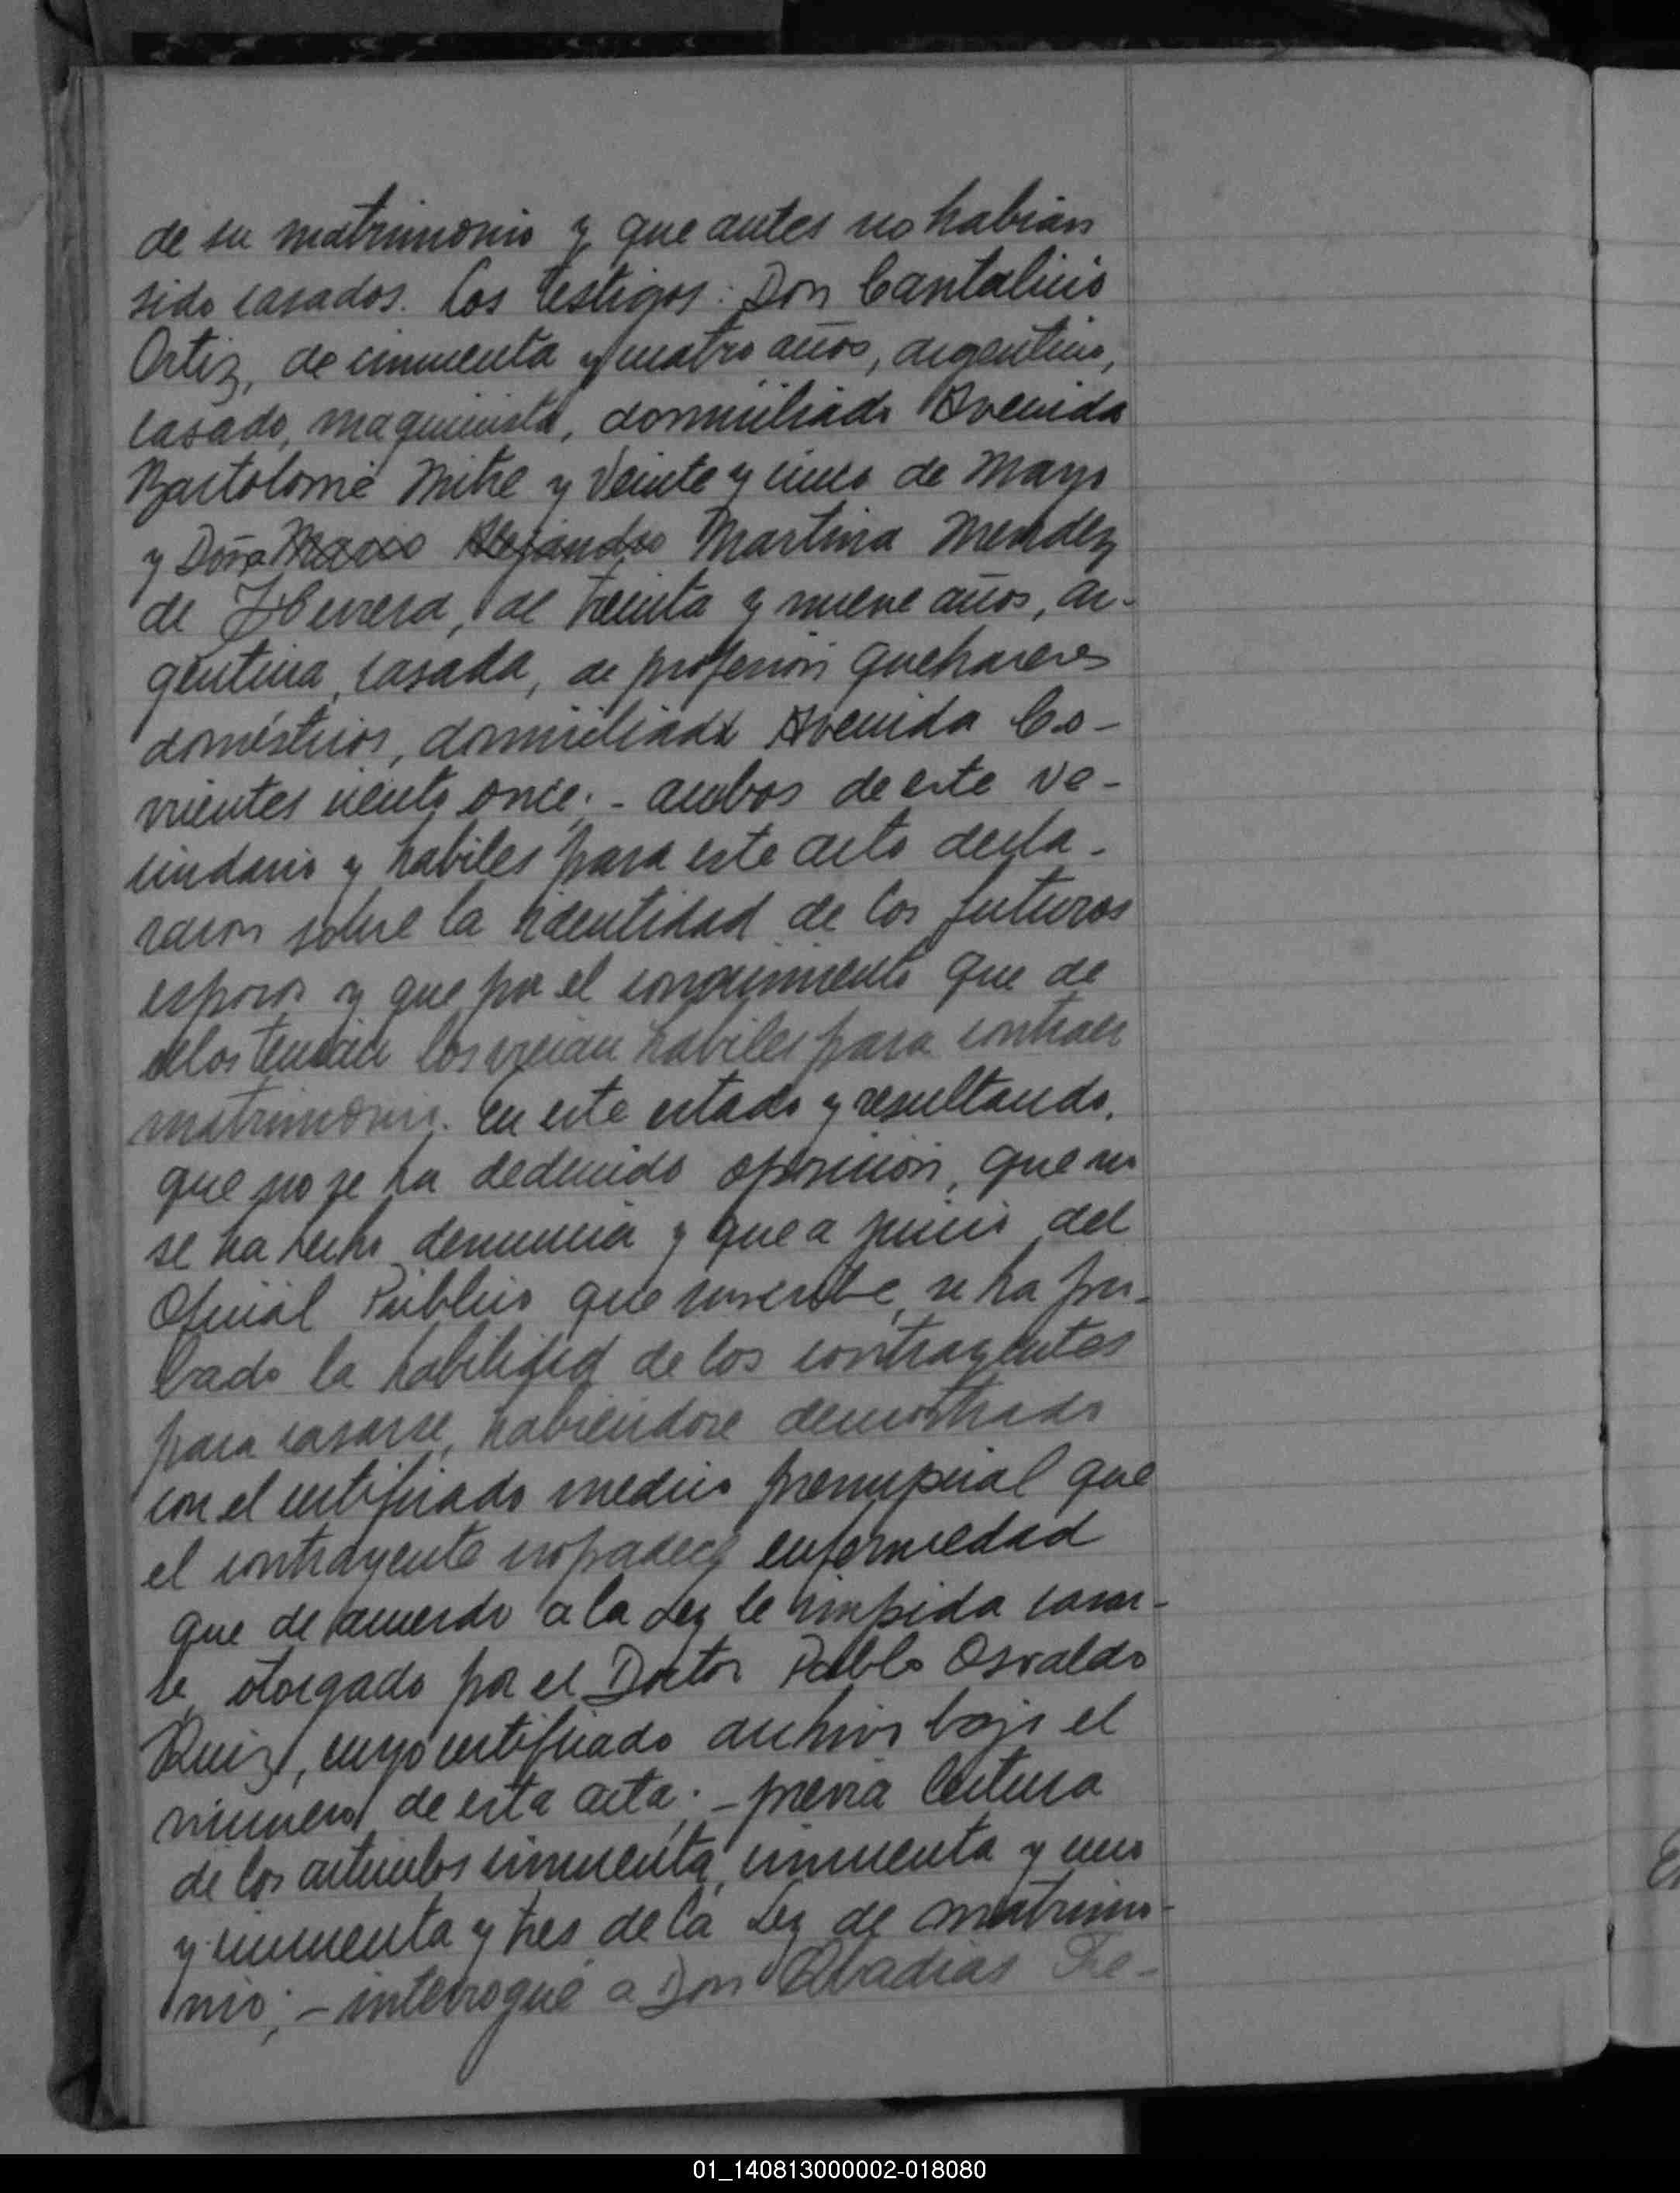 de su matrimonio y que antes no habian
sido casados. Los testigos: Don Cantalicio
Ortiz, de cincuenta y cuatro años, argentino,
casado, maquinista, domiciliado Avenida
Bartolomé Mitre y Veinte y cinco de Mayo
y Doña Mario Alejandro Martina Mendez
de Herrera, de treinta y nueve años, ar-
gentina, casada, de profesión quehaceres
domésticos, domiciliada Avenida Co-
rrientes ciento once; - ambos de este ve-
cindario y habiles para este acto decla-
raron sobre la identidad de los futuros
esposos y que por el conocimiento que de
ellos tenian los creian habiles para contraer
matrimonio. En este estado y resultando,
que no se ha deducido oposición, que no
se ha hecho denuncia y que a juicio del
Oficial Público que suscribe, se ha pro-
bado la habilidad de los contrayentes
para casarse, habiendose demostrado
con el certificado medico prenupcial que
el contrayente no padece enfermedad
que de acuerdo a la Ley le impida casar-
se, otorgado por el Doctor Pablo Osvaldo
Ruiz, cuyo certificado archivo bajo el
número de esta acta; - previa lectura
de los articulos cincuenta, cincuenta y uno
y cincuenta y tres de la Ley de matrimo-
nio; - interrogué a Don Abadias Tre-
01_140813000002-018080